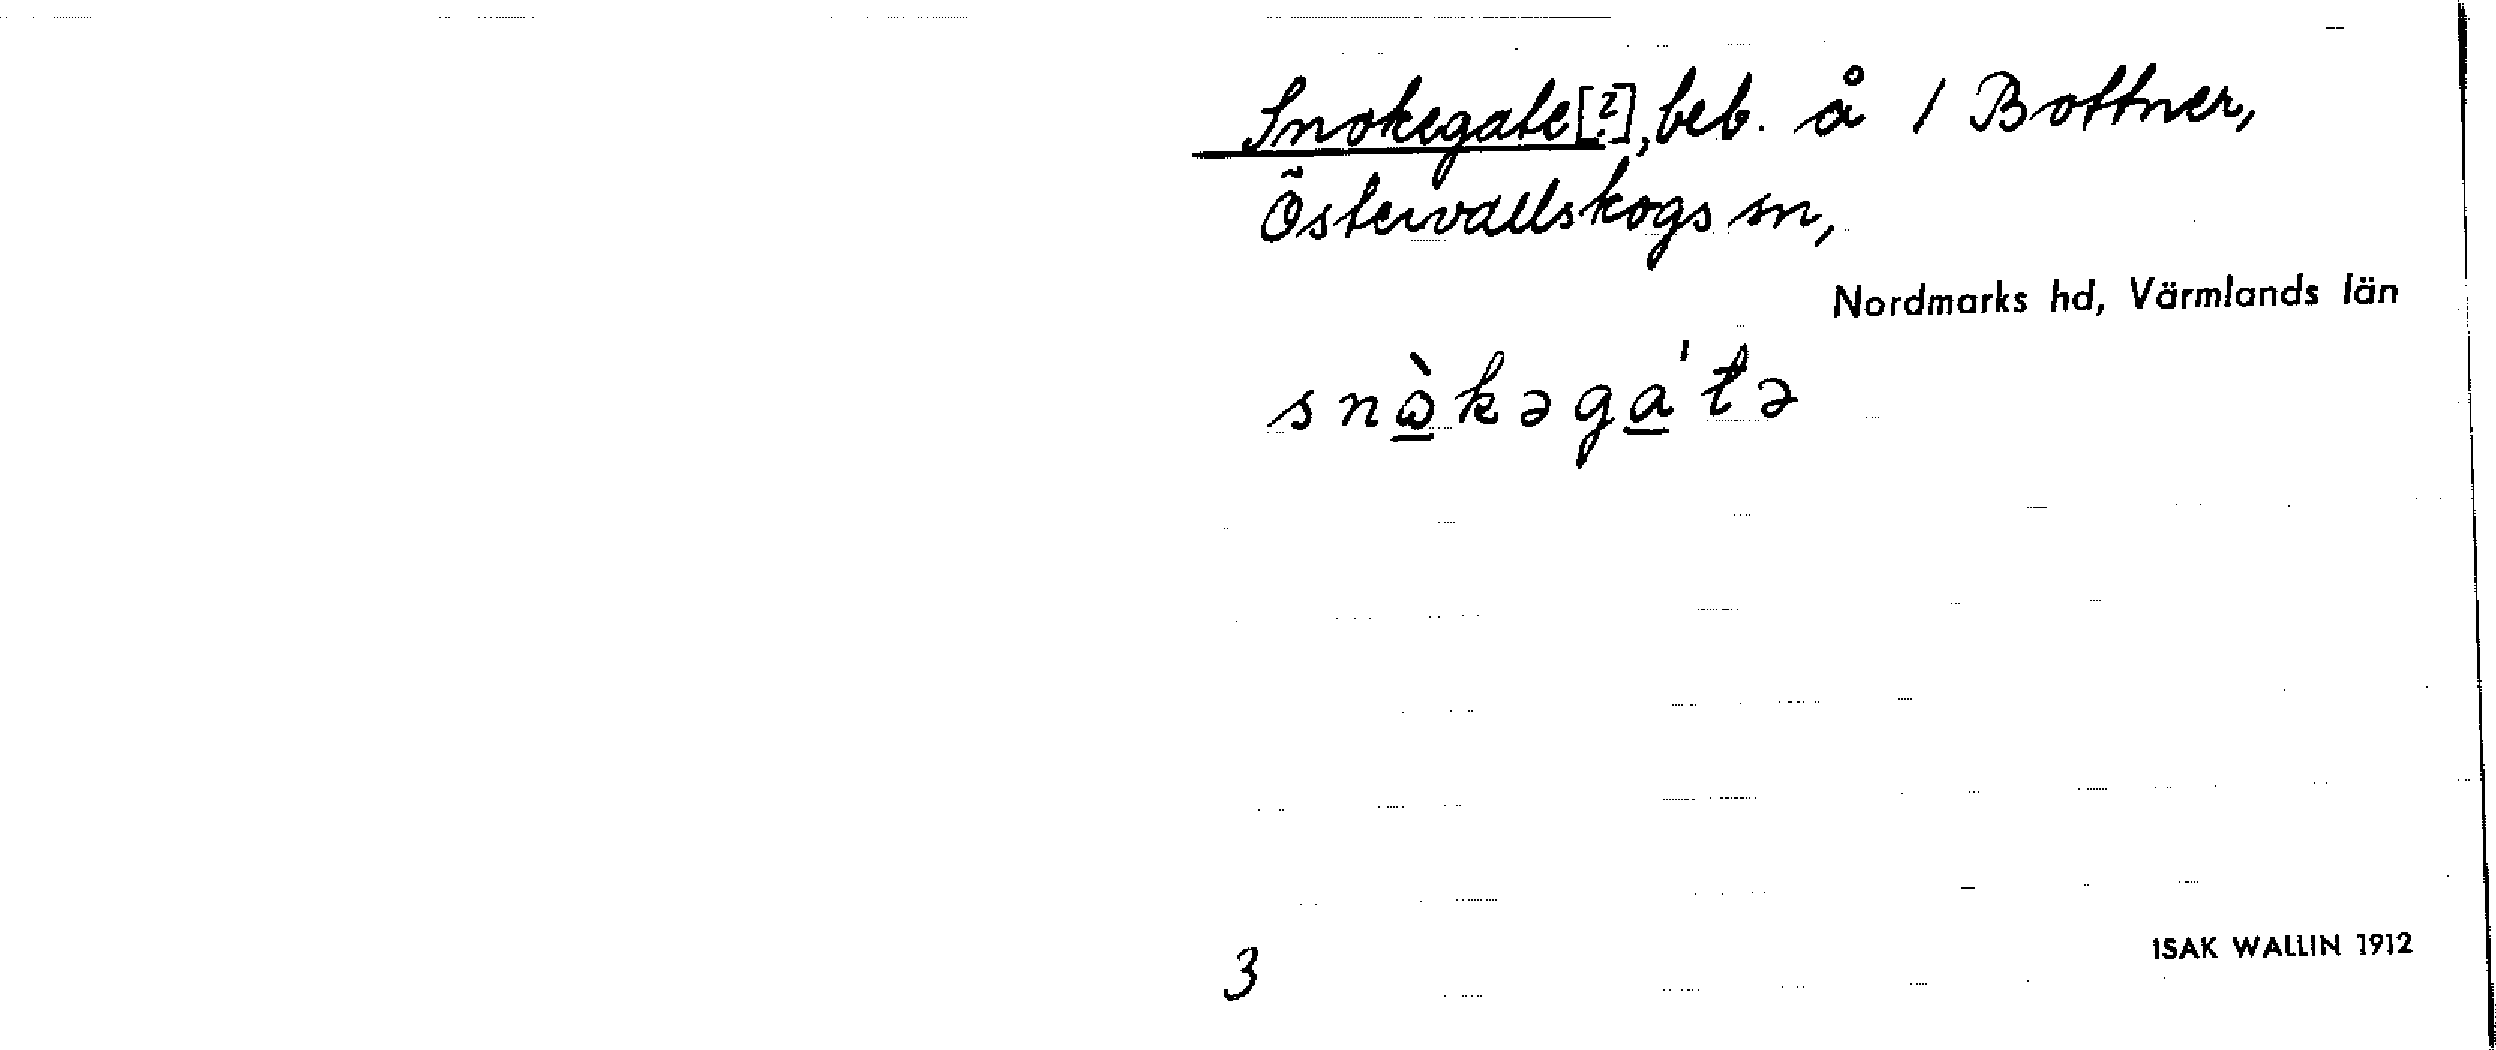 Snokegate[?], beb. å 1 Bottner,
Östervallskogs sn,
Nordmarks hd, Värmlands län
snὼ̱kəga̱'tə
3
ISAK WALLIN 1912